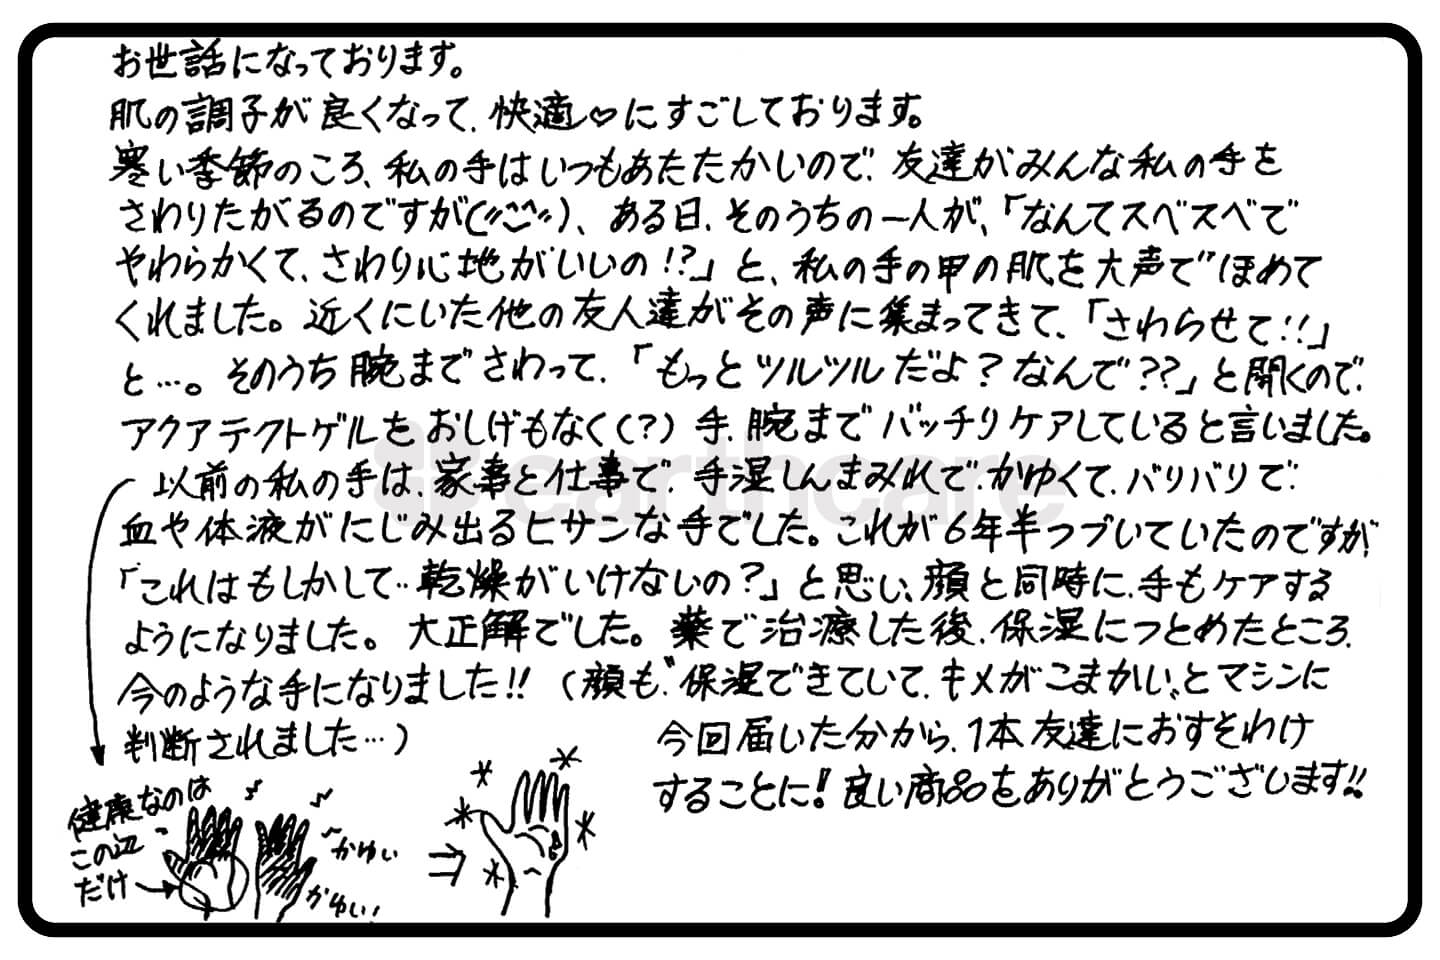 お世話になっております。
肌の調子が良くなって、快適♡にすごしております。
寒い季節のころ、私の手はいつもあたたかいので、友達がみんな私の手を
さわりたがるのですが(〃⌒⌒〃)、ある日、そのうちの一人が、「なんてスベスベで
やわらかくて、さわり心地がいいの!?」と、私の手の甲の肌を大声でほめて
くれました。近くにいた他の友人達がその声に集まってきて、「さわらせて!!」
と…。そのうち腕までさわって、「もっとツルツルだよ?なんで??」と聞くので、
アクアテクトゲルをおしげもなく(?)手、腕までバッチリケアしていると言いました。
以前の私の手は、家事と仕事で、手湿しんまみれで、かゆくて、バリバリで
血や体液がにじみ出るヒサンな手でした。これが6年半つづいていたのですが、
「これはもしかして‥乾燥がいけないの?」と思い、顔と同時に、手もケアする
ようになりました。大正解でした。薬で治療した後、保湿につとめたところ、
今のような手になりました!!(顔も、〝保湿できていて、キメがこまかい〟とマシンに
判断されました…)
今回届いた分から、1本友達におすそわけ
することに!良い商品をありがとうございます!!
健康なのは
この辺
だけ
かゆい
かゆい!
earthcare